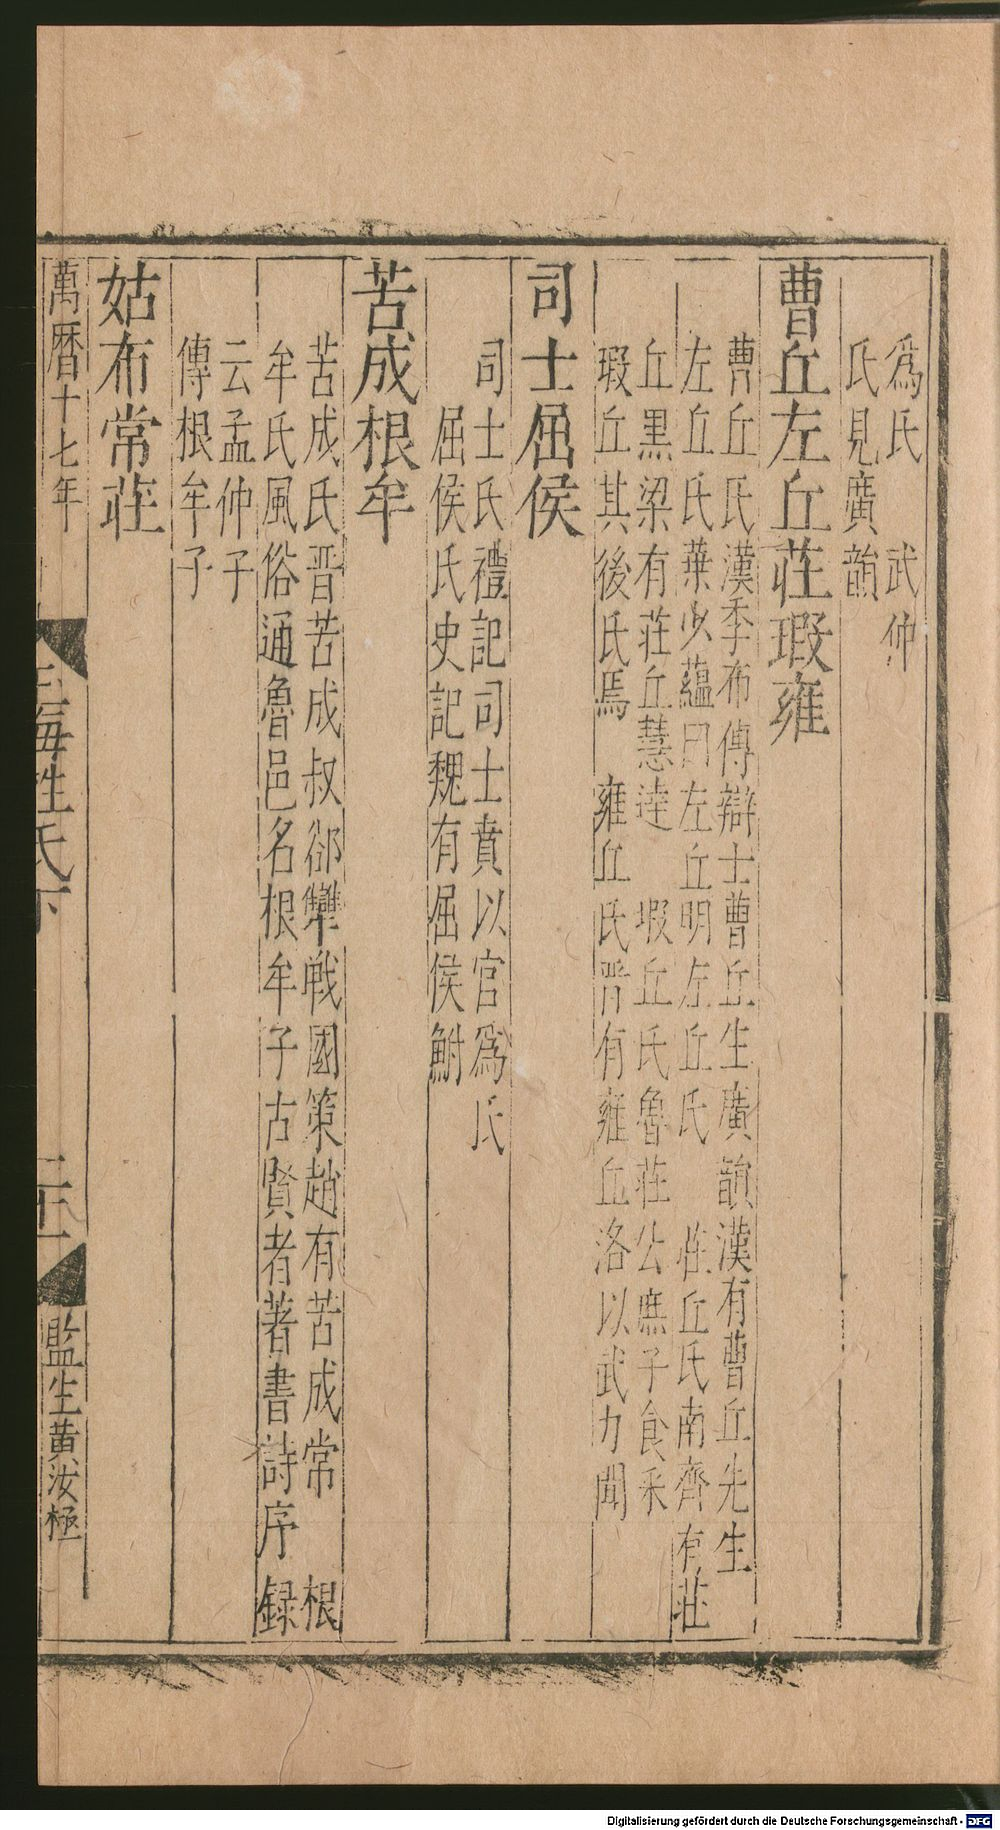 爲氏　武仲
氏見廣韻
曹丘左丘莊瑕雍
曹丘氏漢季布傳辯士曹丘生廣韻漢有曹丘先生
左丘氏葉少蘊曰左丘明左丘氏　莊丘氏南齊有莊
丘黑梁有莊丘慧達　瑕丘氏魯莊公庶子食采
瑕丘其後氏焉　雍丘氏晉有雍丘洛以武力聞
司士屈侯
司士氏禮記司士賁以官爲氏
屈侯氏史記魏有屈侯鮒
苦成根牟
苦成氏晋苦成叔郤犫戰國策趙有苦成常　根
牟氏風俗通魯邑名根牟子古賢者著書詩序録
云孟仲子
傳根牟子
姑布常莊
萬曆十七年
玉海姓氏下
二十一
監生黄汝極
Digitalisierung gefördert durch die Deutsche Forschungsgemeinschaft - DFG